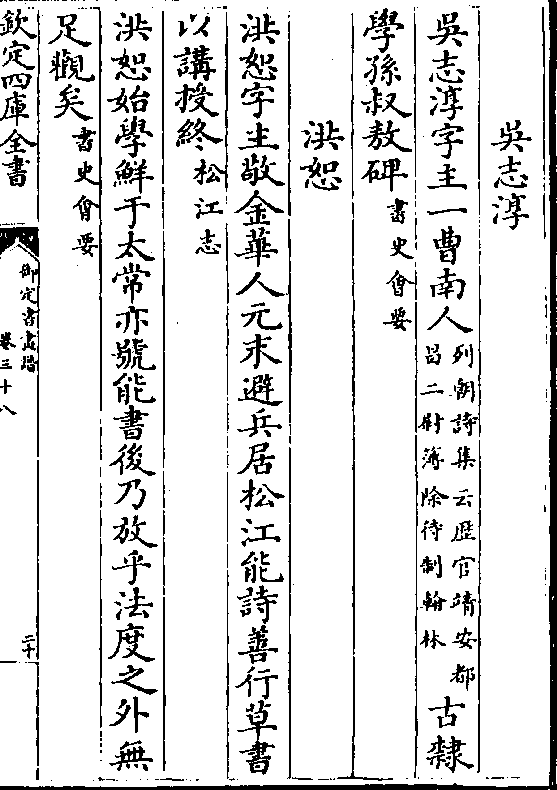 吳志淳
吳志淳字主一曹南人列朝詩集云歴官靖安都昌二尉簿除待制翰林古隸
學孫叔敖碑書史會要
洪恕
洪恕字主敬金華人元末避兵居松江能詩善行草書
以講授終松江志
洪恕始學鮮于太常亦號能書後乃放乎法度之外無
足觀矣書史會要
欽定四庫全書
御定書畫譜
卷三十八
二十